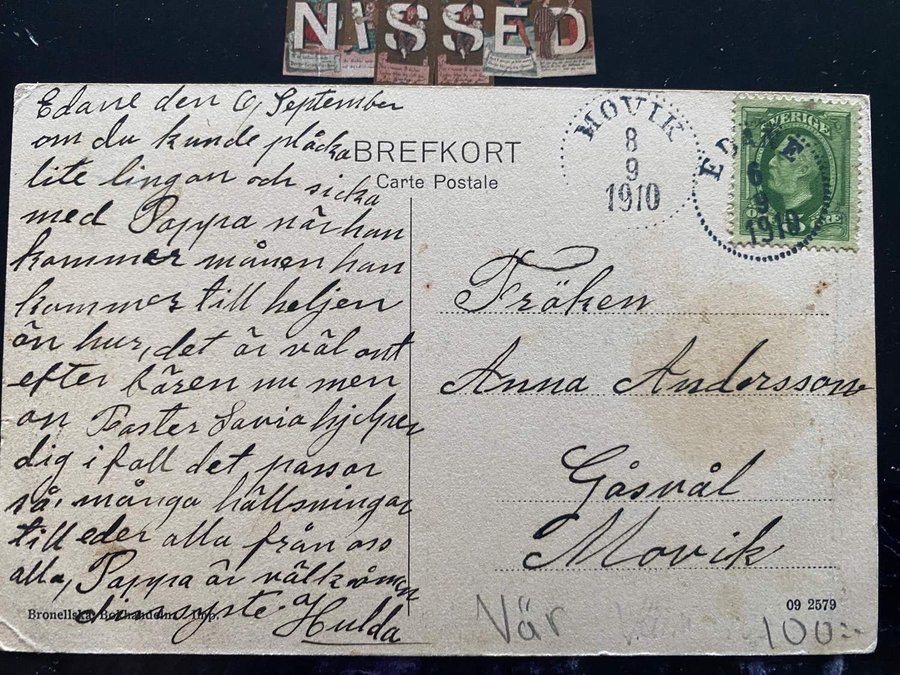 NISSED
Edane den 6 September
om du kunde plåcka
lite lingon och sicka
med Pappa när han
kommer månen han
kommer till heljen
än hur, det är väl ont
efter bären nu men
om Faster Savia hjelper
dig i fall det passar
så många hällsningar
till eder alla från oss
alla, Pappa är välkomen
din syster
Hulda
BREFKORT
Carte Postale
MOVIK
8
9
1910
EDANE
6
9
1910
SVERIGE
Fröken
Anna Andersson
Gåsvål
Movik
Bronellska Bokhandeln. Imp.
09 2579
Vär
100:-